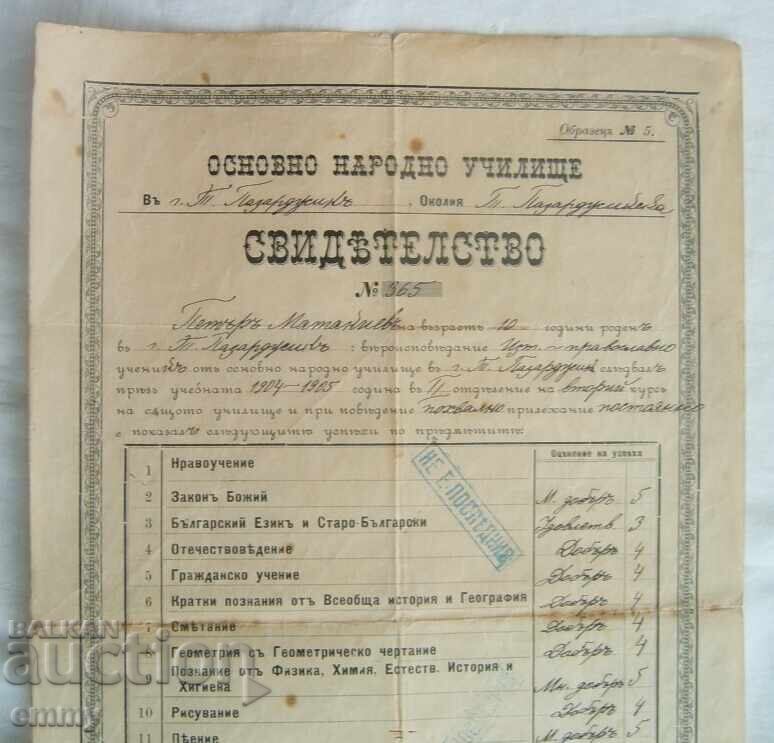 Образецъ № 5.
ОСНОВНО НАРОДНО УЧИЛИЩЕ
Въ г. Т. Пазарджикъ, Околия Т. Пазарджишка
СВИДѢТЕЛСТВО
№ 365
Петъръ на възрасть 10 години роденъ
въ г. Т. Пазарджикъ: вѣроисповѣдание Изт.-православно
ученикъ отъ основно народно училище въ г. Т. Пазарджик следвалъ
прѣзъ учебната 1904-1905 година въ II отдѣление на вторий курсъ
на сѫщото училище и при поведение похвално прилежание постоянно
е показалъ слѣдующитѣ успѣхи по прѣдметитѣ:
Оцѣнение на успѣха
1 Нравоучение
2 Законъ Божий М. добъръ 5
3 Българский Езикъ и Старо-Български Удовлетв 3
4 Отечествовѣдение Добъръ 4
5 Гражданско учение Добъръ 4
6 Кратки познания отъ Всеобща история и География Добъръ 4
7 Смѣтание Добъръ 4
8 Геометрия съ Геометрическо чертание Добъръ 4
9 Познание отъ Физика, Химия, Естеств. История и
Хигиена Мн. добъръ 5
10 Рисувание Добъръ 4
11 Пѣение М. добъръ 5
НЕ Е ПОСЛЕДНИЯ
BALKAN
auction
emmy